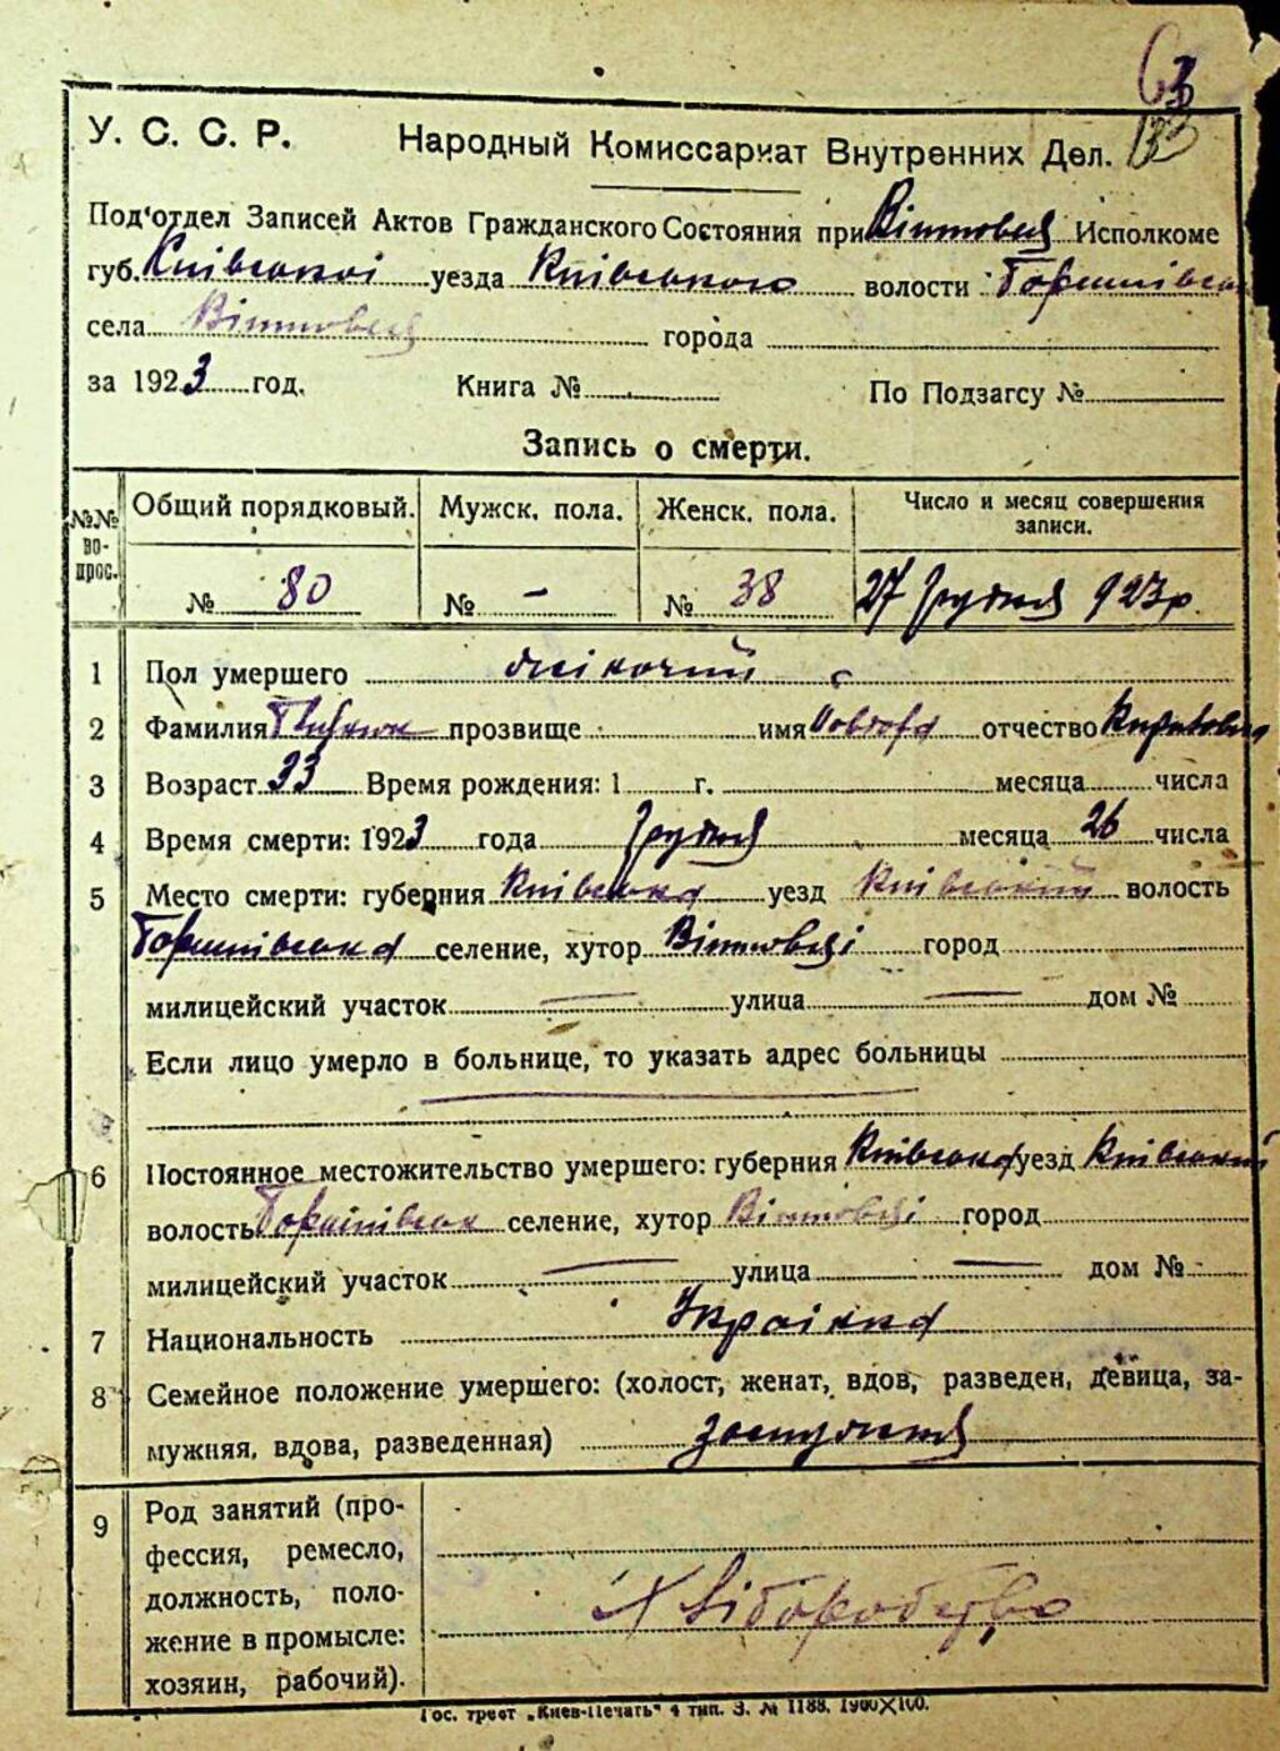 63
133
У. С. С. Р. Народный Комиссариат Внутренних Дел.
Под‘отдел Записей Актов Гражданского Состояния при Исполкоме
губ. Київської уезда Київського волости
села города
за 1923 год. Книга № По Подзагсу №
Запись о смерти.
№№ вопрос.
Общий порядковый. Мужск. пола. Женск. пола. Число и месяц совершения
записи.
№ 80 № - № 38 27 грудня 923 р.
1 Пол умершего жіночий
2 Фамилия прозвище имя отчество
3 Возраст 33 Время рождения: 1 г. месяца числа
4 Время смерти: 1923 года грудня месяца 26 числа
5 Место смерти: губерния Київська уезд Київський волость
селение, хутор город
милицейский участок — улица — дом №
Если лицо умерло в больнице, то указать адрес больницы
6 Постоянное местожительство умершего: губерния Київська уезд Київський
волость селение, хутор город
милицейский участок — улица — дом №
7 Национальность Українка
8 Семейное положение умершего: (холост, женат, вдов, разведен, девица, за-
мужняя, вдова, разведенная) замужня
9 Род занятий (про-
фессия, ремесло,
должность, поло-
жение в промысле:
хозяин, рабочий).
Хліборобство
Гос. трест „Киев-Печать“ 4 тип. З. № 1188. 1900×100.